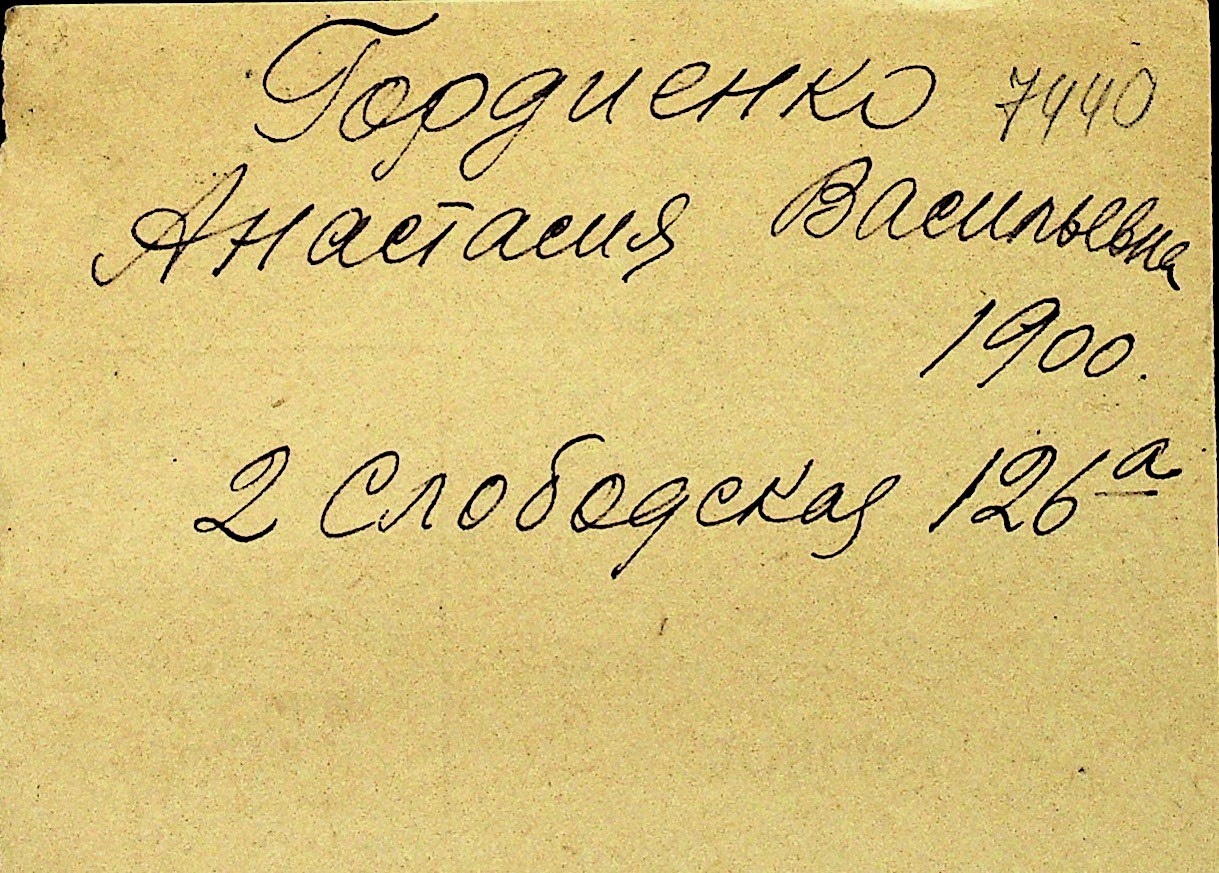 Гордиенко 7440
Анастасия Васильевна
1900.
2 Слободская 126а